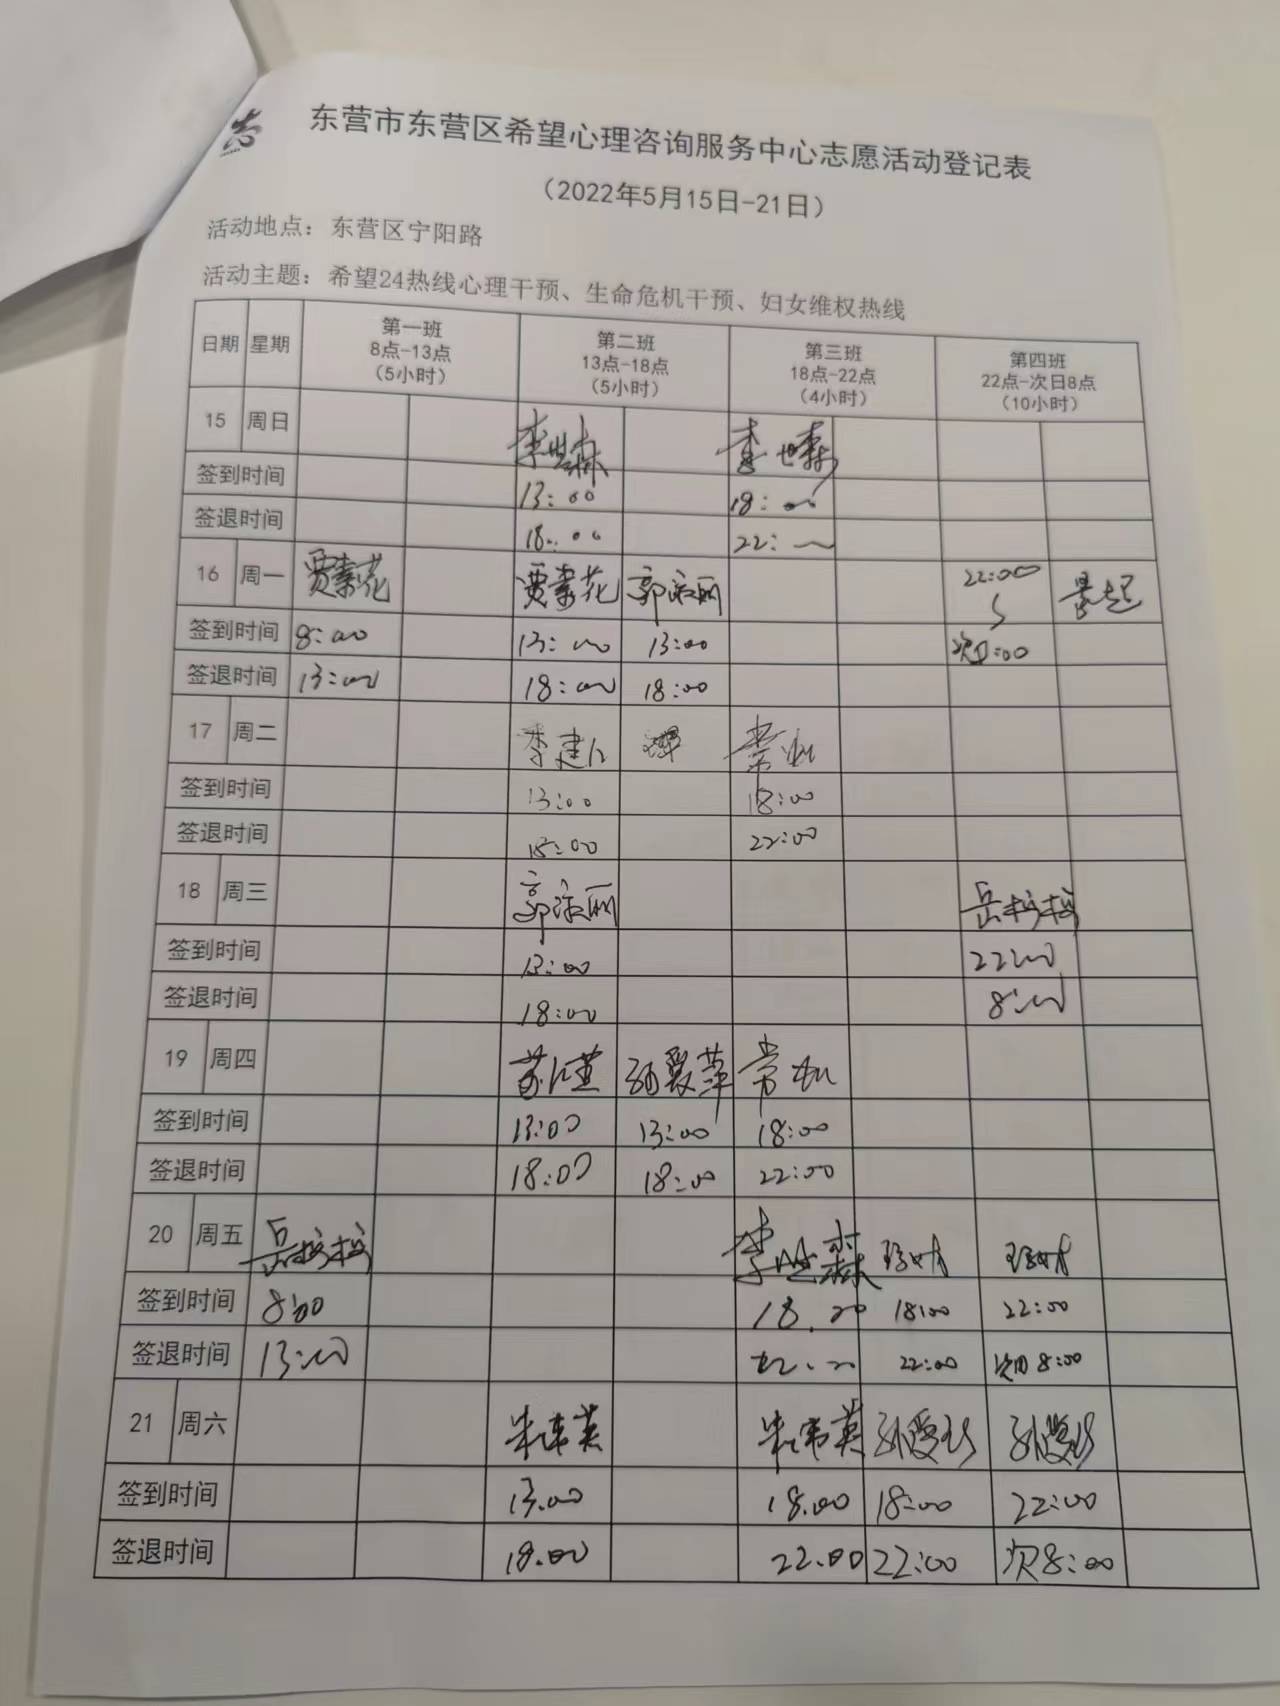 志
东营市东营区希望心理咨询服务中心志愿活动登记表
（2022年5月15日-21日）
活动地点：东营区宁阳路
活动主题：希望24热线心理干预、生命危机干预、妇女维权热线
日期 星期 第一班 8点-13点 （5小时） 第二班 13点-18点 （5小时） 第三班 18点-22点 （4小时） 第四班 22点-次日8点 （10小时）
15 周日 李世森 李世森
签到时间 13:00 18:00
签退时间 18:00 22:00
16 周一 贾素花 贾素花 郭淑丽 22:00
签到时间 8:00 13:00 13:00
签退时间 13:00 18:00 18:00
17 周二 李建
签到时间 13:00 18:00
签退时间 18:00 22:00
18 周三 郭淑丽 岳梅梅
签到时间 13:00 22:00
签退时间 18:00 8:00
19 周四
签到时间 13:00 13:00 18:00
签退时间 18:00 18:00 22:00
20 周五 岳梅梅 李世森
签到时间 8:00 18.00 18:00 22:00
签退时间 13:00 22:00 次日8:00
21 周六
签到时间 13.00 18.00 18:00 22:00
签退时间 18.00 22.00 22:00 次8:00